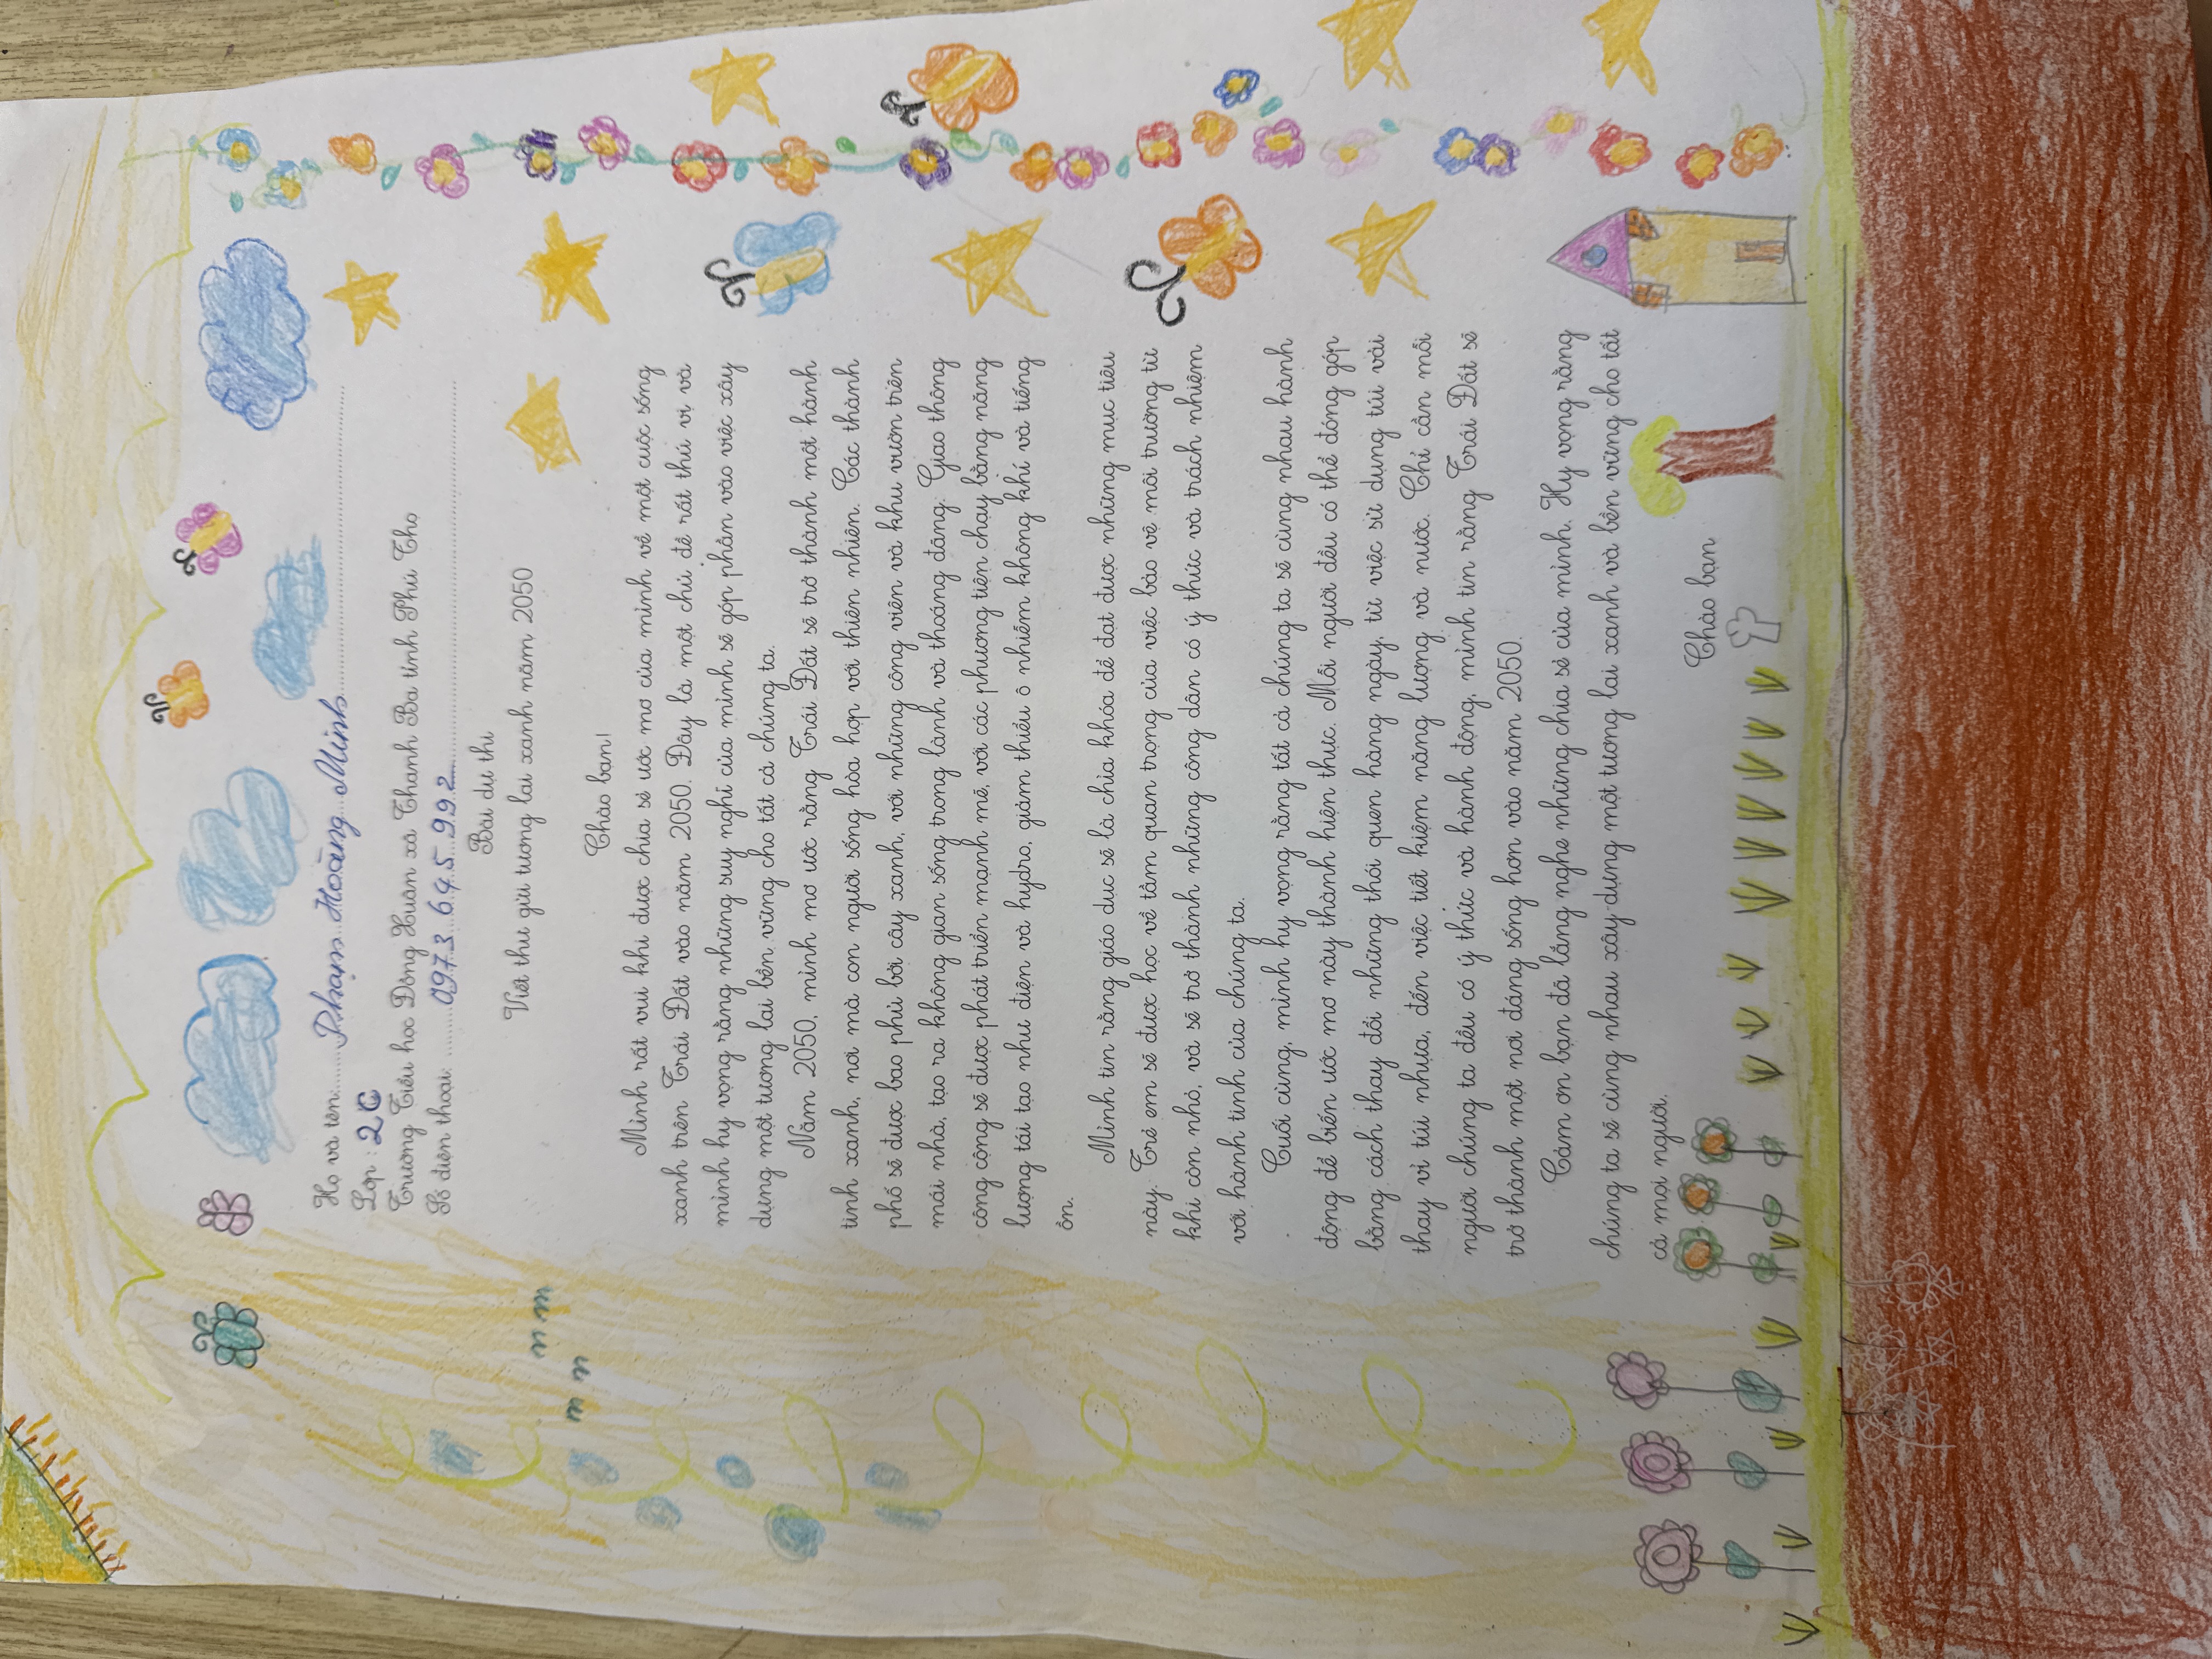 Họ và tên:.....Phạm Hoàng Minh.....
Lớp : 2C
Trường Tiểu học Đông Huân xã Thanh Ba tỉnh Phú Thọ
Số điện thoại: .......0973 645 992.......
Bài dự thi
Viết thư gửi tương lai xanh năm 2050
Chào bạn!
Mình rất vui khi được chia sẻ ước mơ của mình về một cuộc sống
xanh trên Trái Đất vào năm 2050. Đây là một chủ đề rất thú vị và
mình hy vọng rằng những suy nghĩ của mình sẽ góp phần vào việc xây
dựng một tương lai bền vững cho tất cả chúng ta.
Năm 2050, mình mơ ước rằng Trái Đất sẽ trở thành một hành
tinh xanh, nơi mà con người sống hòa hợp với thiên nhiên. Các thành
phố sẽ được bao phủ bởi cây xanh, với những công viên và khu vườn trên
mái nhà, tạo ra không gian sống trong lành và thoáng đãng. Giao thông
công cộng sẽ được phát triển mạnh mẽ, với các phương tiện chạy bằng năng
lượng tái tạo như điện và hydro, giảm thiểu ô nhiễm không khí và tiếng
ồn.
Mình tin rằng giáo dục sẽ là chìa khóa để đạt được những mục tiêu
này. Trẻ em sẽ được học về tầm quan trọng của việc bảo vệ môi trường từ
khi còn nhỏ, và sẽ trở thành những công dân có ý thức và trách nhiệm
với hành tinh của chúng ta.
Cuối cùng, mình hy vọng rằng tất cả chúng ta sẽ cùng nhau hành
động để biến ước mơ này thành hiện thực. Mỗi người đều có thể đóng góp
bằng cách thay đổi những thói quen hàng ngày, từ việc sử dụng túi vải
thay vì túi nhựa, đến việc tiết kiệm năng lượng và nước. Chỉ cần mỗi
người chúng ta đều có ý thức và hành động, mình tin rằng Trái Đất sẽ
trở thành một nơi đáng sống hơn vào năm 2050.
Cảm ơn bạn đã lắng nghe những chia sẻ của mình. Hy vọng rằng
chúng ta sẽ cùng nhau xây dựng một tương lai xanh và bền vững cho tất
cả mọi người.
Chào bạn